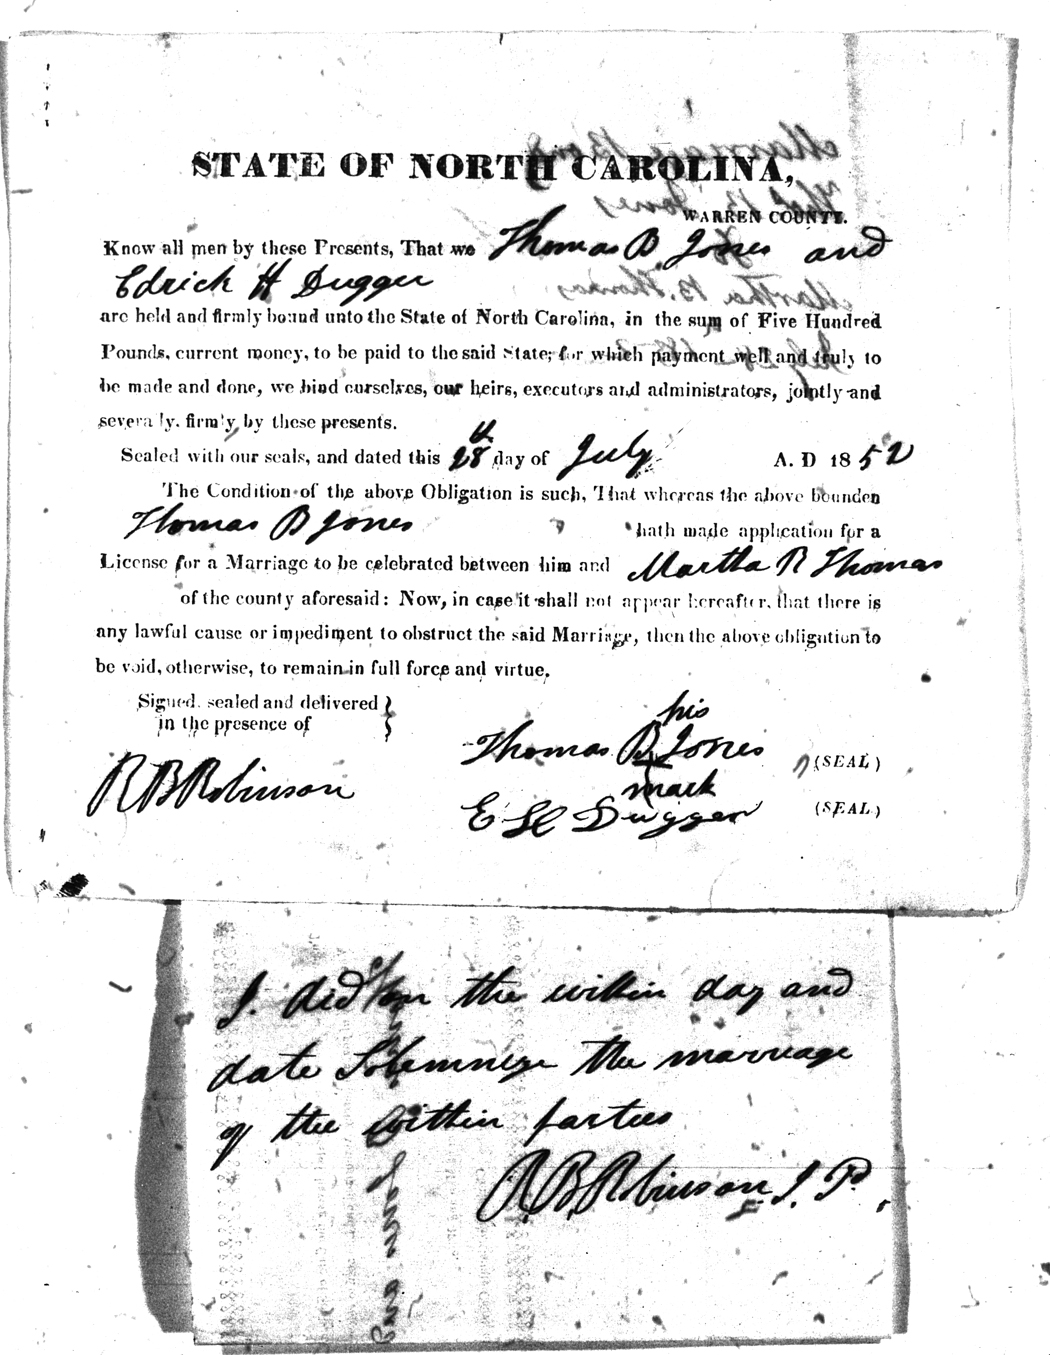 STATE OF NORTH CAROLINA,
WARREN COUNTY.
Know all men by these Presents, That we Thomas B. Jones and
Edrick H Dugger
are held and firmly bound unto the State of North Carolina, in the sum of Five Hundred
Pounds, current money, to be paid to the said State; for which payment well and truly to
be made and done, we bind ourselves, our heirs, executors and administrators, jointly and
severally, firmly by these presents.
Sealed with our seals, and dated this 28th day of July A. D 1852
The Condition of the above Obligation is such, That whereas the above bounden
Thomas B Jones hath made application for a
License for a Marriage to be celebrated between him and Martha R Thomas
of the county aforesaid: Now, in case it shall not appear hereafter, that there is
any lawful cause or impediment to obstruct the said Marriage, then the above obligation to
be void, otherwise, to remain in full force and virtue.
Signed, sealed and delivered
in the presence of
his
Thomas B Jones (SEAL)
mark
R B Robinson
E H Dugger (SEAL)
I. did on the within day and
date Solemnize the marriage
of the within parties
R. B. Robinson J. P.